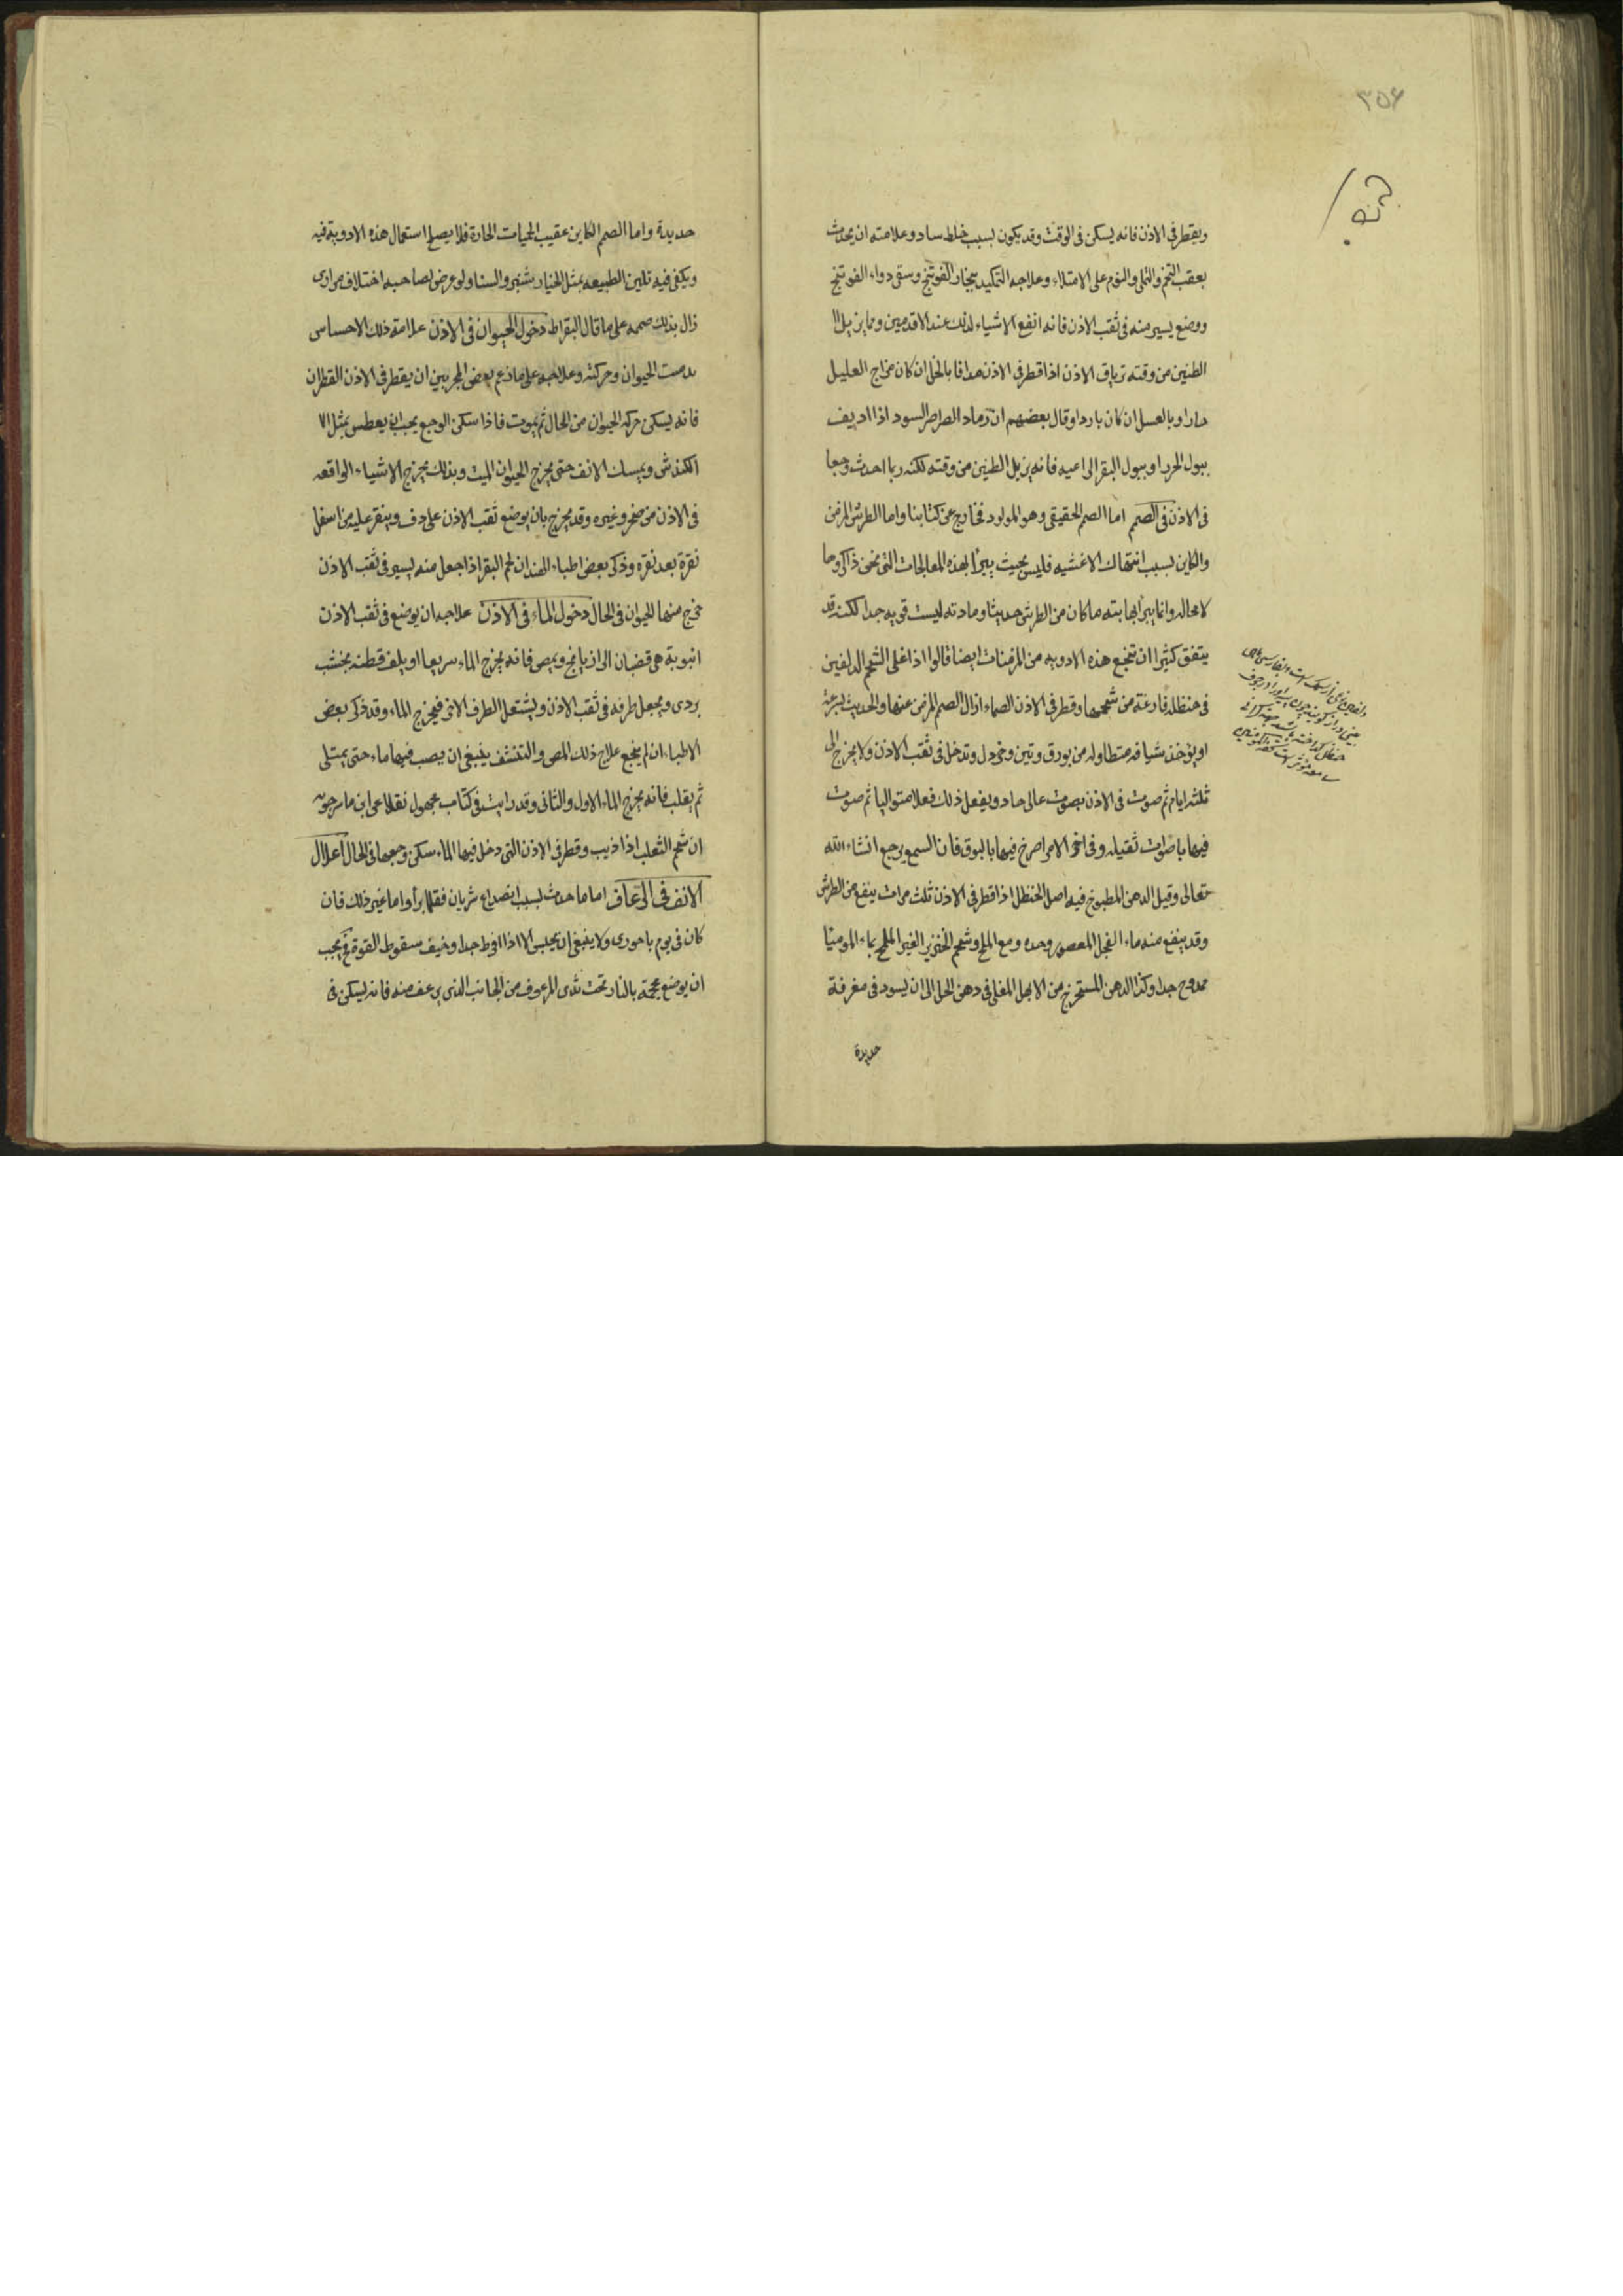 ٣٥۶
ويقطر فى الاذن فانه يسكن فى الوقت وقد يكون لسبب خلط ساد وعلامته ان يحدث
بعقب التخم والتملى والنوم على الامتلاء وعلاجه التكميد ببخار الفوتنج وسقى دواء الفوتنج
ووضع يسير منه فى ثقب الاذن فانه انفع الاشياء لذلك عند الاقدمين ومما يزيل الا
الطنين من وقته ترياق الاذن اذا قطر فى الاذن مدافا بالخل ان كان مزاج العليل
حارا وبالعسل ان كان باردا وقال بعضهم ان رماد الصراصر السود اذا اديف
ببول او ببول البقر الراعيه فانه يزيل الطنين من وقته لكنه ربما احدث وجعا
فى الاذن فى الصمم اما الصمم الحقيقى وهو المولود فخارج عن كتابنا واما الطرش المزمن
والكاين لسبب انتهاك الاغشيه فليس بحيث يبرأ بهذه المعالجات التى نحن ذاكروها
لا محاله وانما يبرأ بها بته ما كان من الطرش حديثا ومادته ليست قويه جدا لكنه قد
يتفق كثيرا ان تنجع هذه الادويه من المزمنات ايضا قالوا اذا غلى الشحم الدلفين
فى حنظله فارغة من شحمها وقطر فى الاذن الصماء ازال الصمم المزمن عنها والحديث
او يؤخذ شيافه متطاوله من بورق وتين وخردل وتدخل فى ثقب الاذن ولا يخرج الى
ثلثه ايام ثم صوت فى الاذن بصوت عالى حاد ويفعل ذلك فعلا متواليا ثم صوت
فيها باصوات ثقيله وفى اخر الامر اصرخ فيها بالبوق فان السمع يرجع انشاء الله
تعالى وقيل الدهن المطبوخ فيه اصل الحنظل اذا قطر فى الاذن ثلث مرات ينفع من الطرش
وقد ينفع منه ماء الفجل المعصور وحده ومع الملح وشحم الخنزير الغير المملح بماء الموميا
ممدوح جدا وكذا الدهن المستخرج من الابهل المغلى فى دهن الحل الى ان يسود فى مغرفة
حديدة
حديدة واما الصمم الكاين عقيب الحميات الحارة فلا يصلح استعمال هذه الادوية فيه
ويكفى فيه تليين الطبيعه بمثل الخيارشنبر والسنا ولو عرض لصاحبه اختلاف مرارى
زال بذلك صممه على ما قال البقراط دخول الحيوان فى الاذن علامة ذلك الاحساس
بدبيب الحيوان وحركته وعلاجه على ما زعم بعض المجربين ان يقطر فى الاذن القطران
فانه يسكن حركه الحيوان من الحال ثم يموت فاذا سكن الوجع يجب ان يعطس بمثل الا
الكندش ويمسك الانف حتى يخرج الحيوان الميت وبذلك يخرج الاشياء الواقعه
فى الاذن من صخر وغيره وقد يخرج بان يوضع ثقب الاذن على دف وينقر عليه من اسفل
نقرة بعد نقره وذكر بعض اطباء الهند ان لحم البقر اذا جعل منه يسير فى ثقب الاذن
خرج منها الحيوان فى الحال دخول الماء فى الاذن علاجه ان يوضع فى ثقب الاذن
انبوبة هى قضبان الرازيانج ويمص فانه يخرج الماء سريعا او يلف قطنه بخشب
بردى ويجعل طرفه فى ثقب الاذن ويشتعل الطرف الاخر فيخرج الماء وقد ذكر بعض
الاطباء ان لم ينجع علاج ذلك المص والتنشف ينبغى ان يصب فيها ماء حتى يمتلى
ثم يقلب فانه يخرج الماء الاول والثانى وقد رايت فى كتاب مجهول نقلا عن ابن ماسرجويه
ان شحم الثعلب اذا اذيب وقطر فى الاذن التى دخل فيها الماء سكن وجعها فى الحال اعلال
الانف فى الرعاف اما ما حدث لسبب انصداع شريان فقلما يبرأ واما غير ذلك فان
كان فى يوم باحورى ولا ينبغى ان يحبس الا اذا افرط جدا وخيف سقوط القوة فح يجب
ان يوضع محجمة بالنار تحت ثدى المرعوف من الجانب الذى يرعف منه فانه ليسكن فى